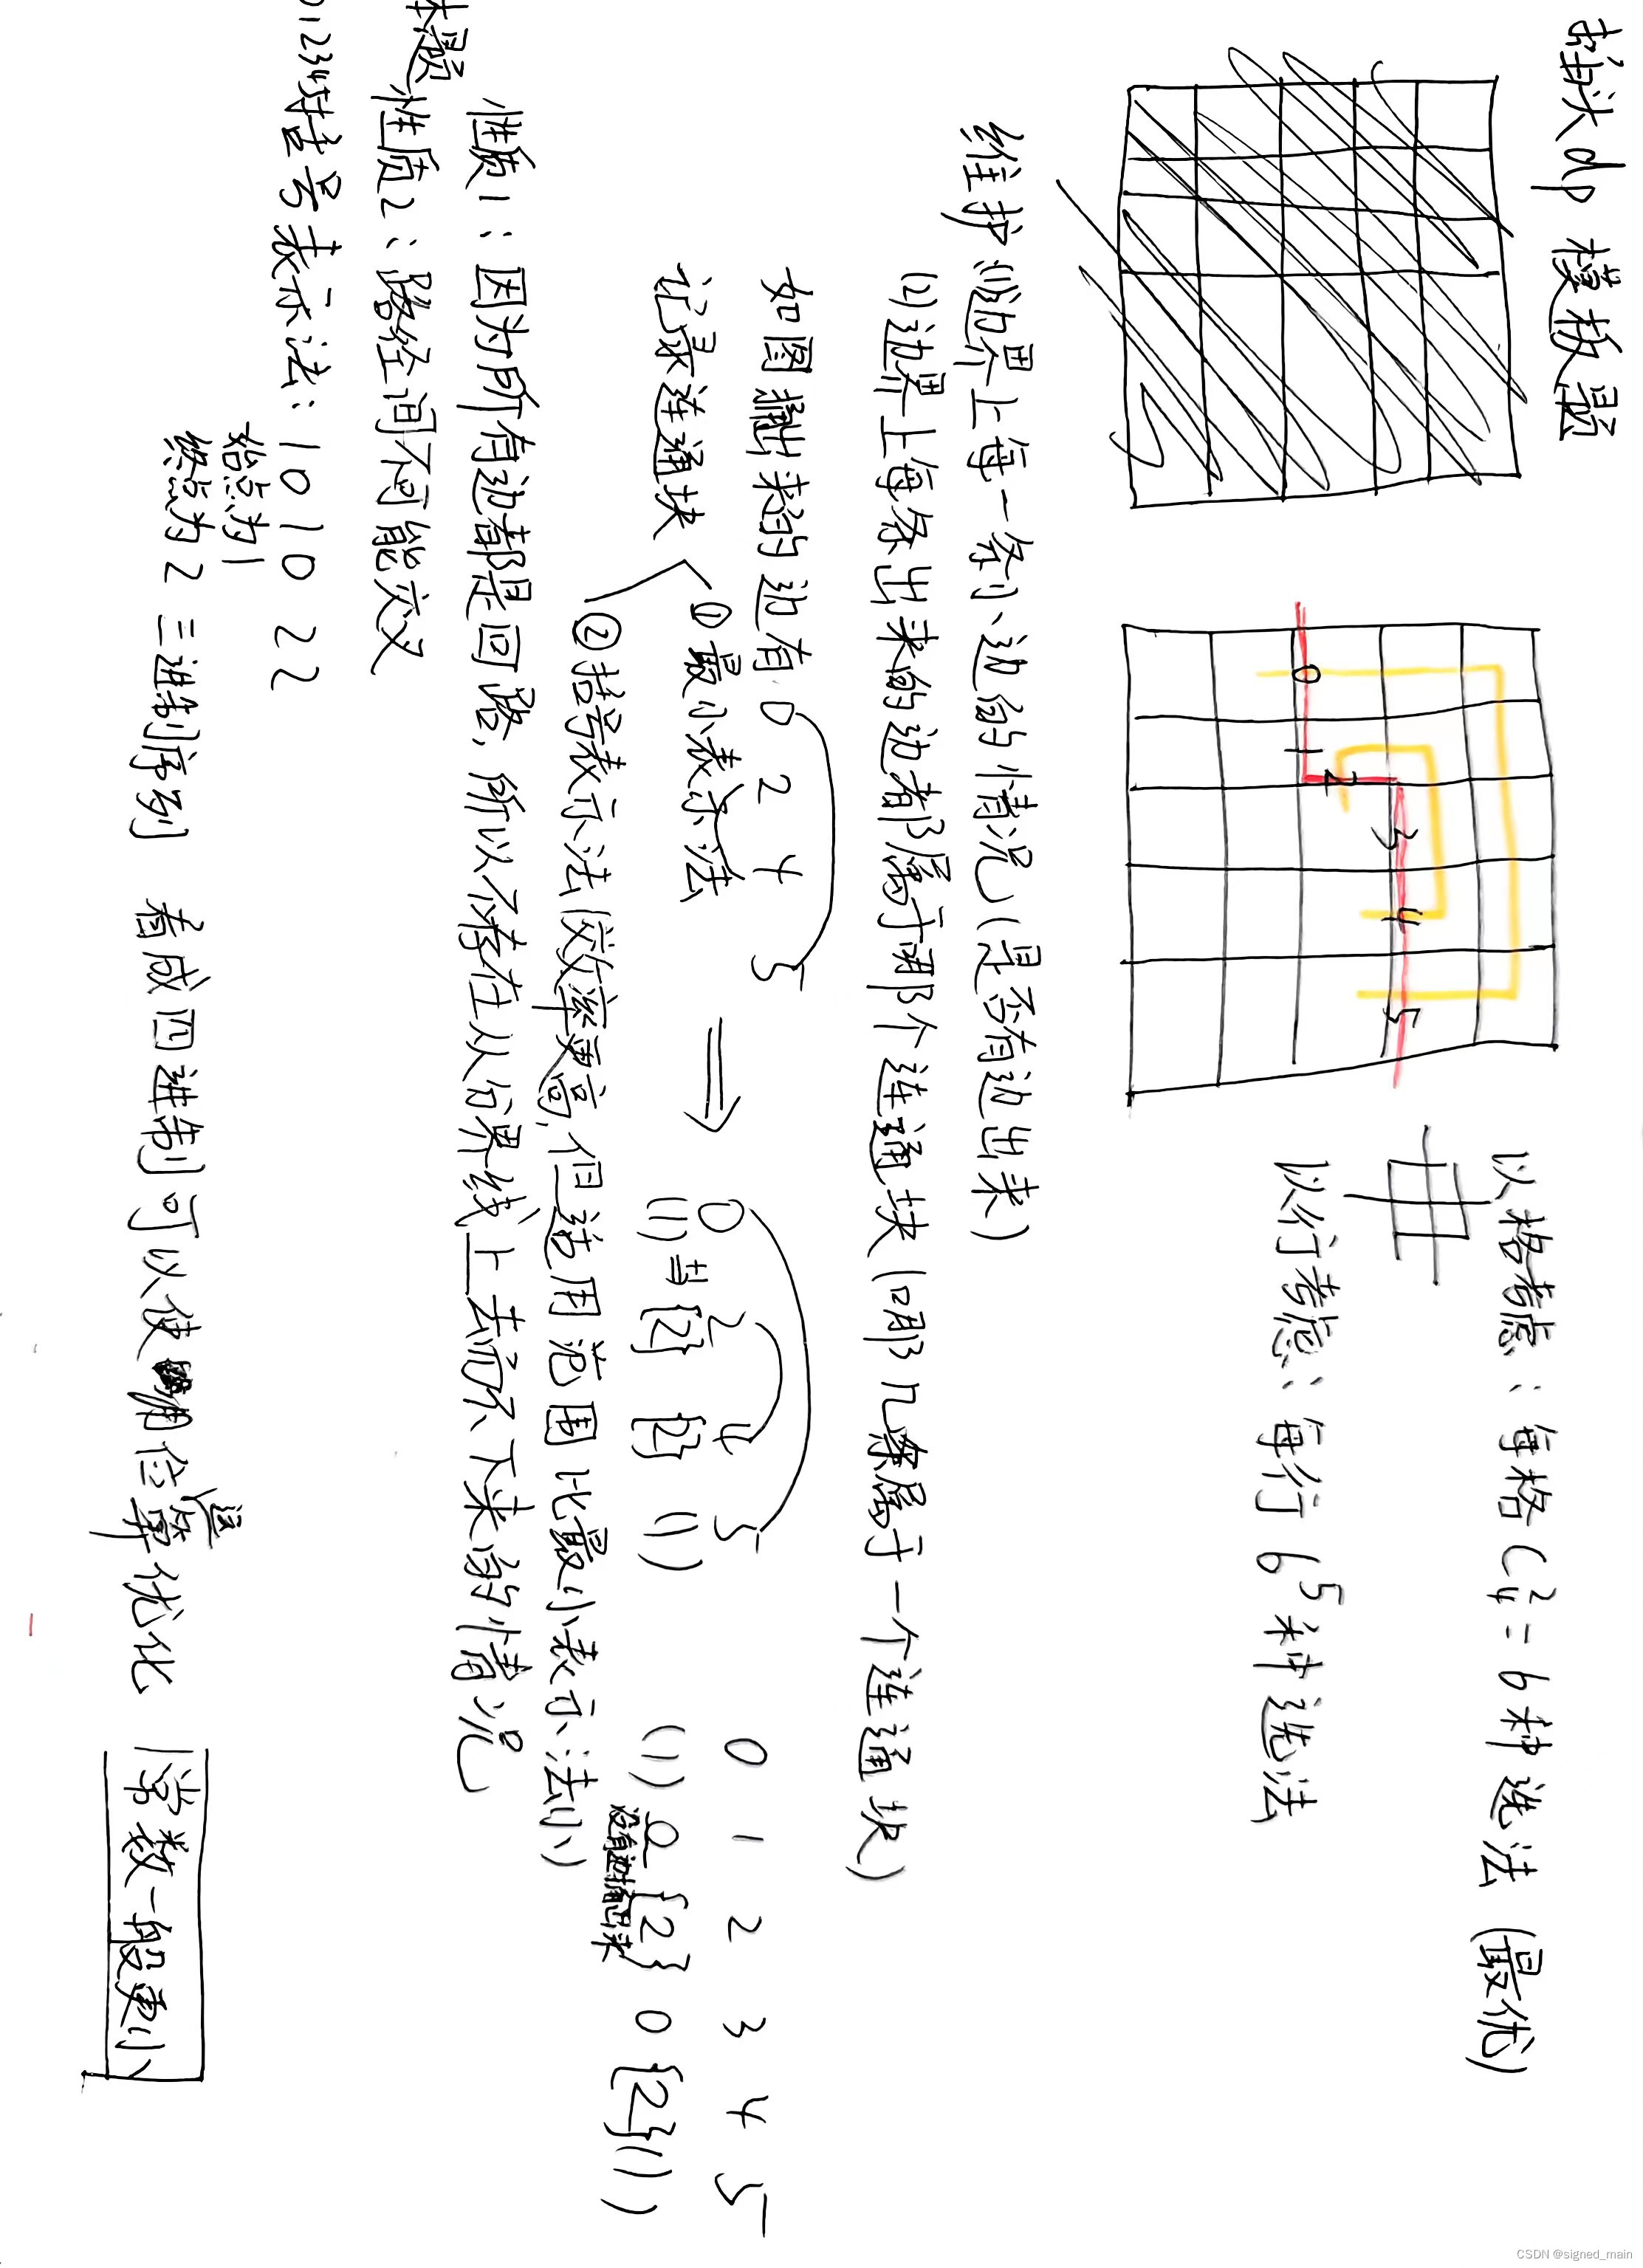 插头dp 模板题
以格考虑：每格C₄²=6种选法（最优）
以行考虑：每行6⁵种选法
0 1 2 3 4 5
维护 (1)边界上每一条小边的情况（是否有边出来）
(2)边界上每条出来的边都属于哪个连通块（哪几条属于一个连通块）
如图搠出来的边有 0 2 4 5
0 2 4 5
0 1 2 3 4 5
记录连通块
①最小表示法
(1) 与 {2} {2} (1)
(1) 0 {2} 0 {2} (1)
没有边捅出来
②括号表示法（效率更高，但适用范围比最小表示法小）
性质1：因为所有边都是回路，所以不存在从分界线上去而不下来的情况
本题 性质2：路径间不可能交叉
01234括号表示法：1 0 1 0 2 2
始点为1
终点为2 三进制序列 看成四进制可以使用位运算优化 常数一般更小
CSDN @signed_main